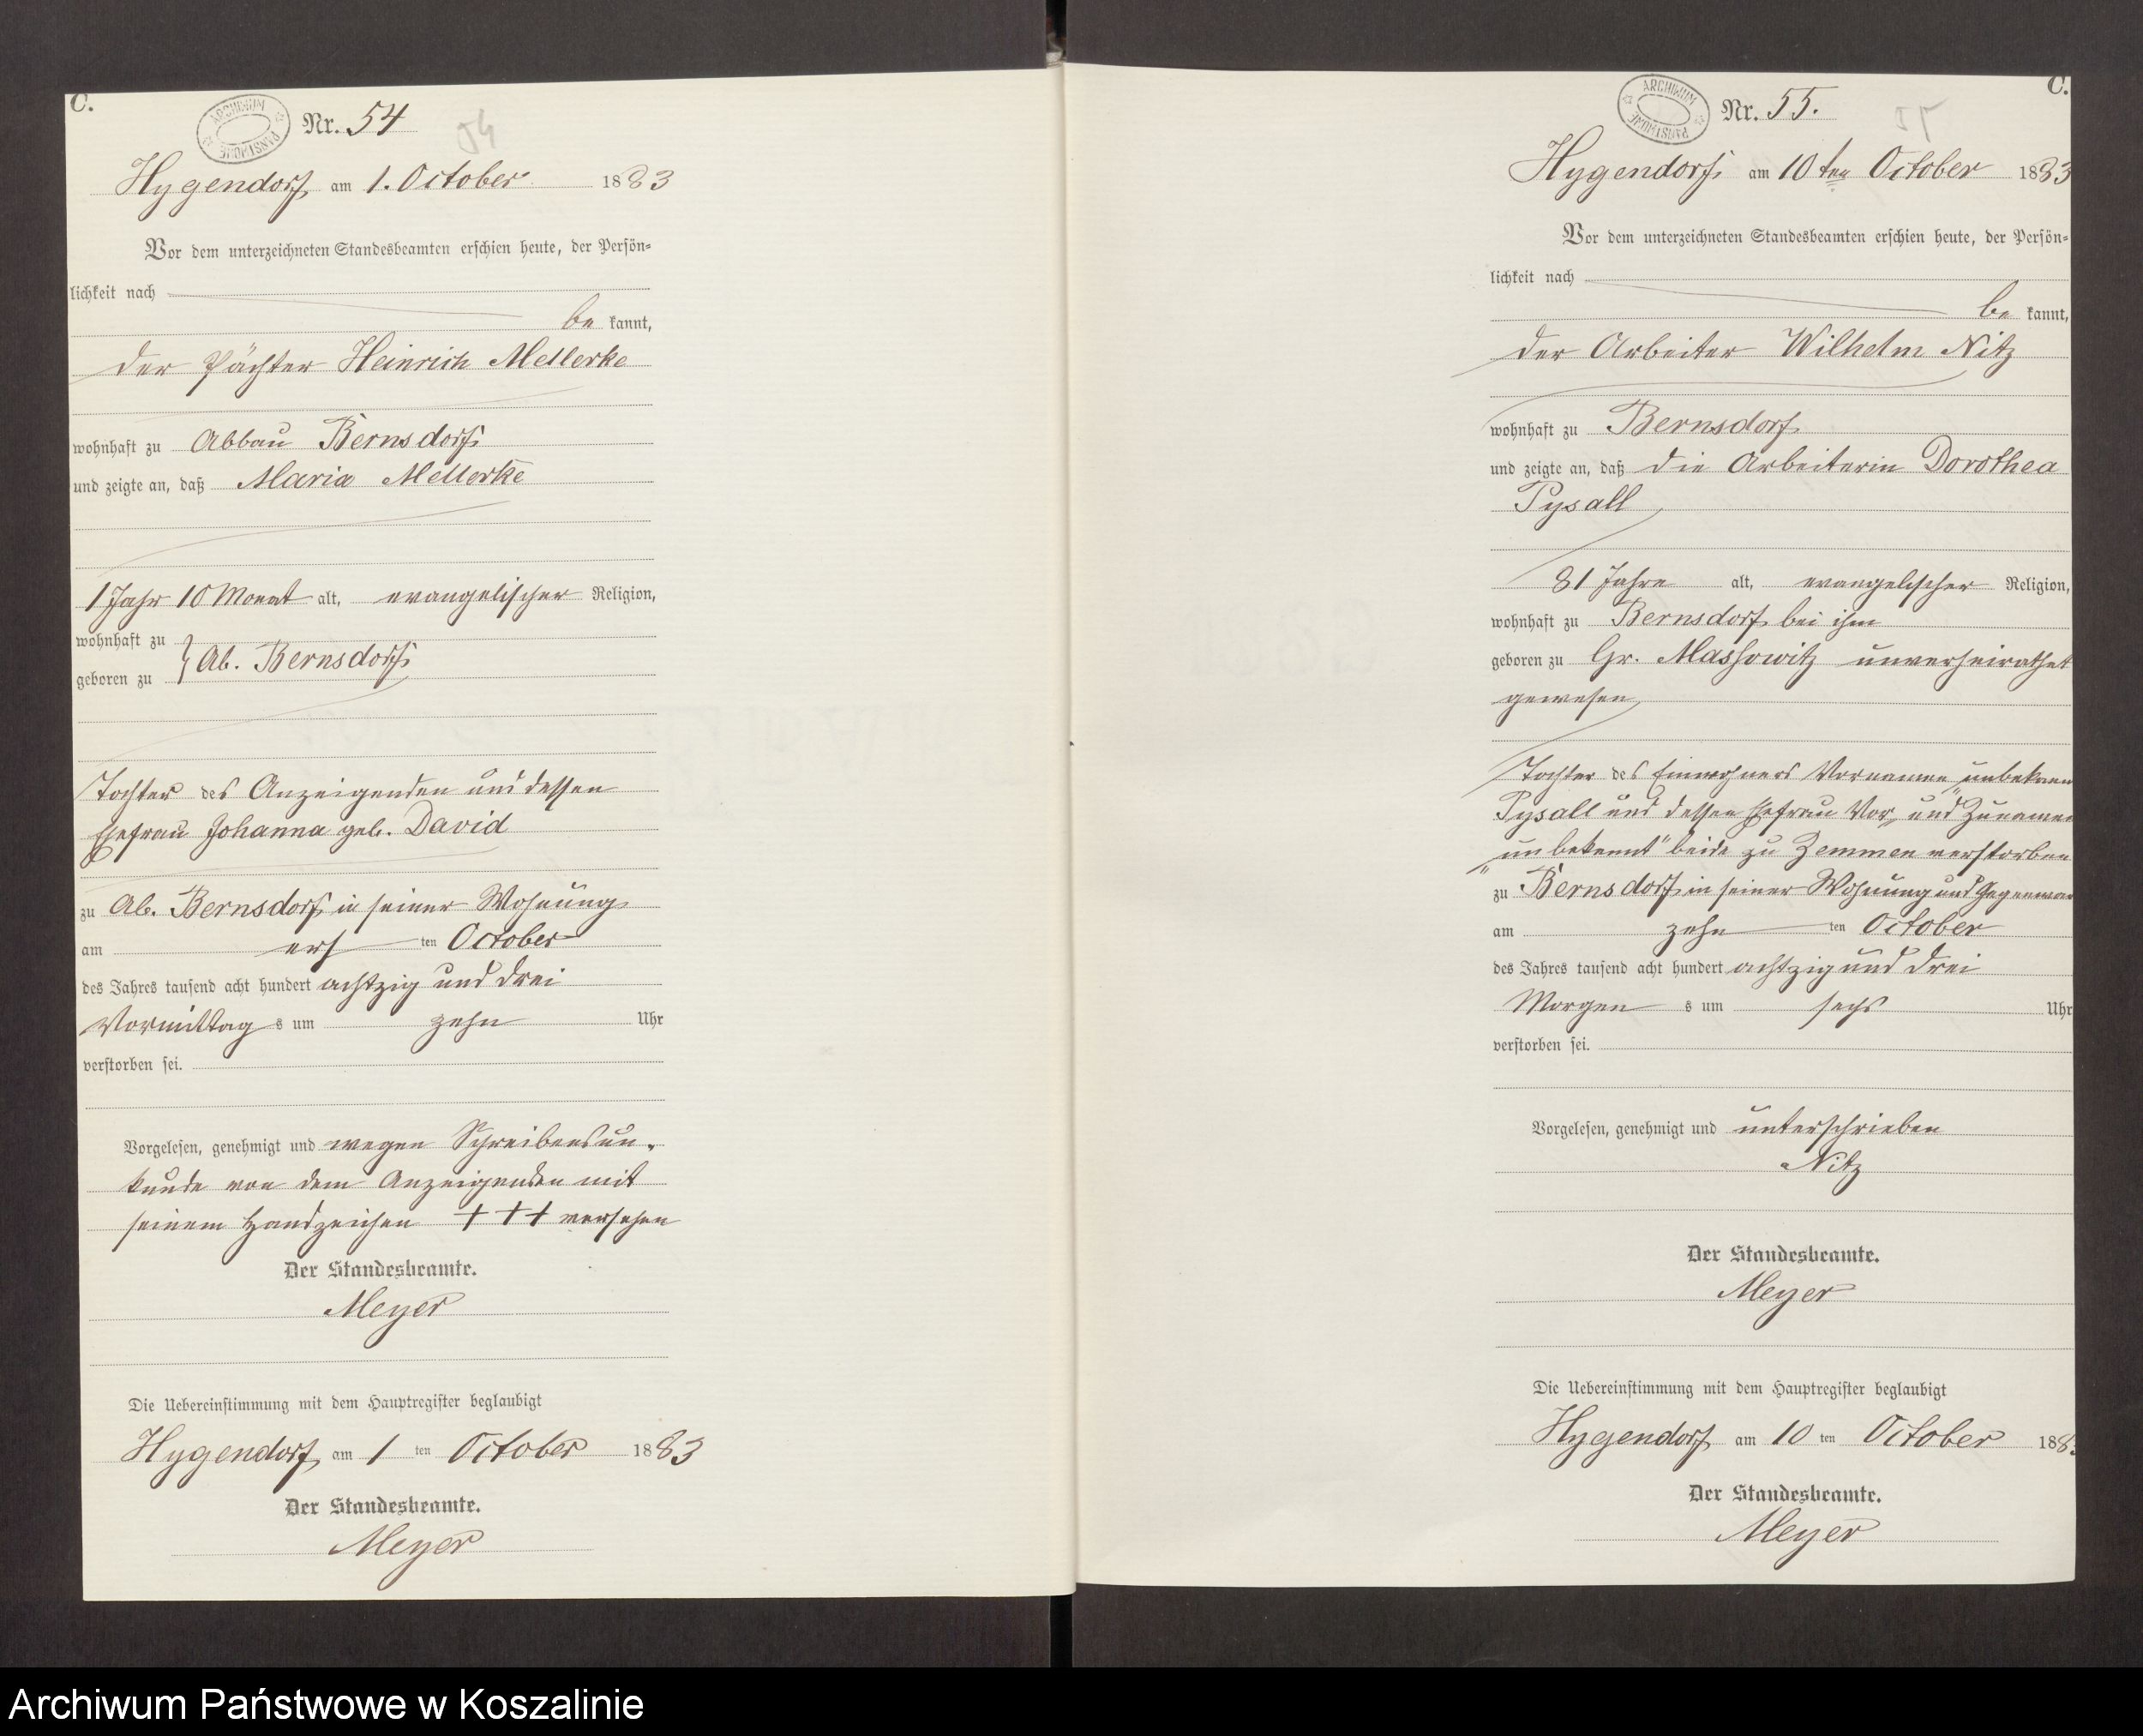 C.
ARCHIWUM PAŃSTWOWE
Nr. 54
54
Hygendorf, am 1. October 1883
Vor dem unterzeichneten Standesbeamten erschien heute, der Persön=
lichkeit nach
be kannt,
der Pächter Heinrich Mellerke
wohnhaft zu Abbau Bernsdorf
und zeigte an, daß Maria Mellerke
1 Jahr 10 Monat alt, evangelischer Religion,
wohnhaft zu
geboren zu } Ab. Bernsdorf,
Tochter des Anzeigenden und dessen
Ehefrau Johanna geb. David
zu Ab. Bernsdorf, in seiner Wohnung
am ers ten October
des Jahres tausend acht hundert achtzig und drei
Vormittag s um zehn Uhr
verstorben sei.
Vorgelesen, genehmigt und wegen Schreibensun-
kunde von dem Anzeigenden mit
seinem Handzeichen +++ versehen
Der Standesbeamte.
Meyer
Die Uebereinstimmung mit dem Hauptregister beglaubigt
Hygendorf, am 1 ten October 1883
Der Standesbeamte.
Meyer
C.
ARCHIWUM PAŃSTWOWE
Nr. 55.
55
Hygendorf, am 10ten October 1883
Vor dem unterzeichneten Standesbeamten erschien heute, der Persön=
lichkeit nach
be kannt,
der Arbeiter Wilhelm Nitz
wohnhaft zu Bernsdorf
und zeigte an, daß die Arbeiterin Dorothea
Pysall
81 Jahre alt, evangelischer Religion,
wohnhaft zu Bernsdorf, bei ihm
geboren zu Gr. Massowitz unverheirathet
gewesen,
Tochter des Einwohners Vornamen „unbekann
Pysall und dessen Ehefrau Vor„ und Zunamen
„unbekannt" beide zu Zemmen verstorben
zu Bernsdorf, in seiner Wohnung und Gegenwar
am zehn ten October
des Jahres tausend acht hundert achtzig und drei
Morgen s um sechs Uhr
verstorben sei.
Vorgelesen, genehmigt und unterschrieben
Nitz
Der Standesbeamte.
Meyer
Die Uebereinstimmung mit dem Hauptregister beglaubigt
Hygendorf, am 10 ten October 188
Der Standesbeamte.
Meyer
Archiwum Państwowe w Koszalinie